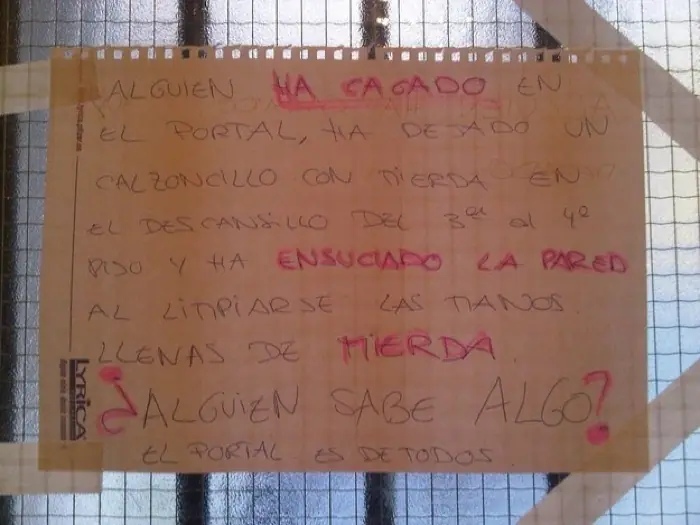 ALGUIEN HA CAGADO EN
EL PORTAL, HA DEJADO UN
CALZONCILLO CON MIERDA EN
EL DESCANSILLO DEL 3er al 4º
PISO Y HA ENSUCIADO LA PARED
AL LIMPIARSE LAS MANOS.
LLENAS DE MIERDA.
¿ALGUIEN SABE ALGO?
EL PORTAL ES DE TODOS.
LYRICA